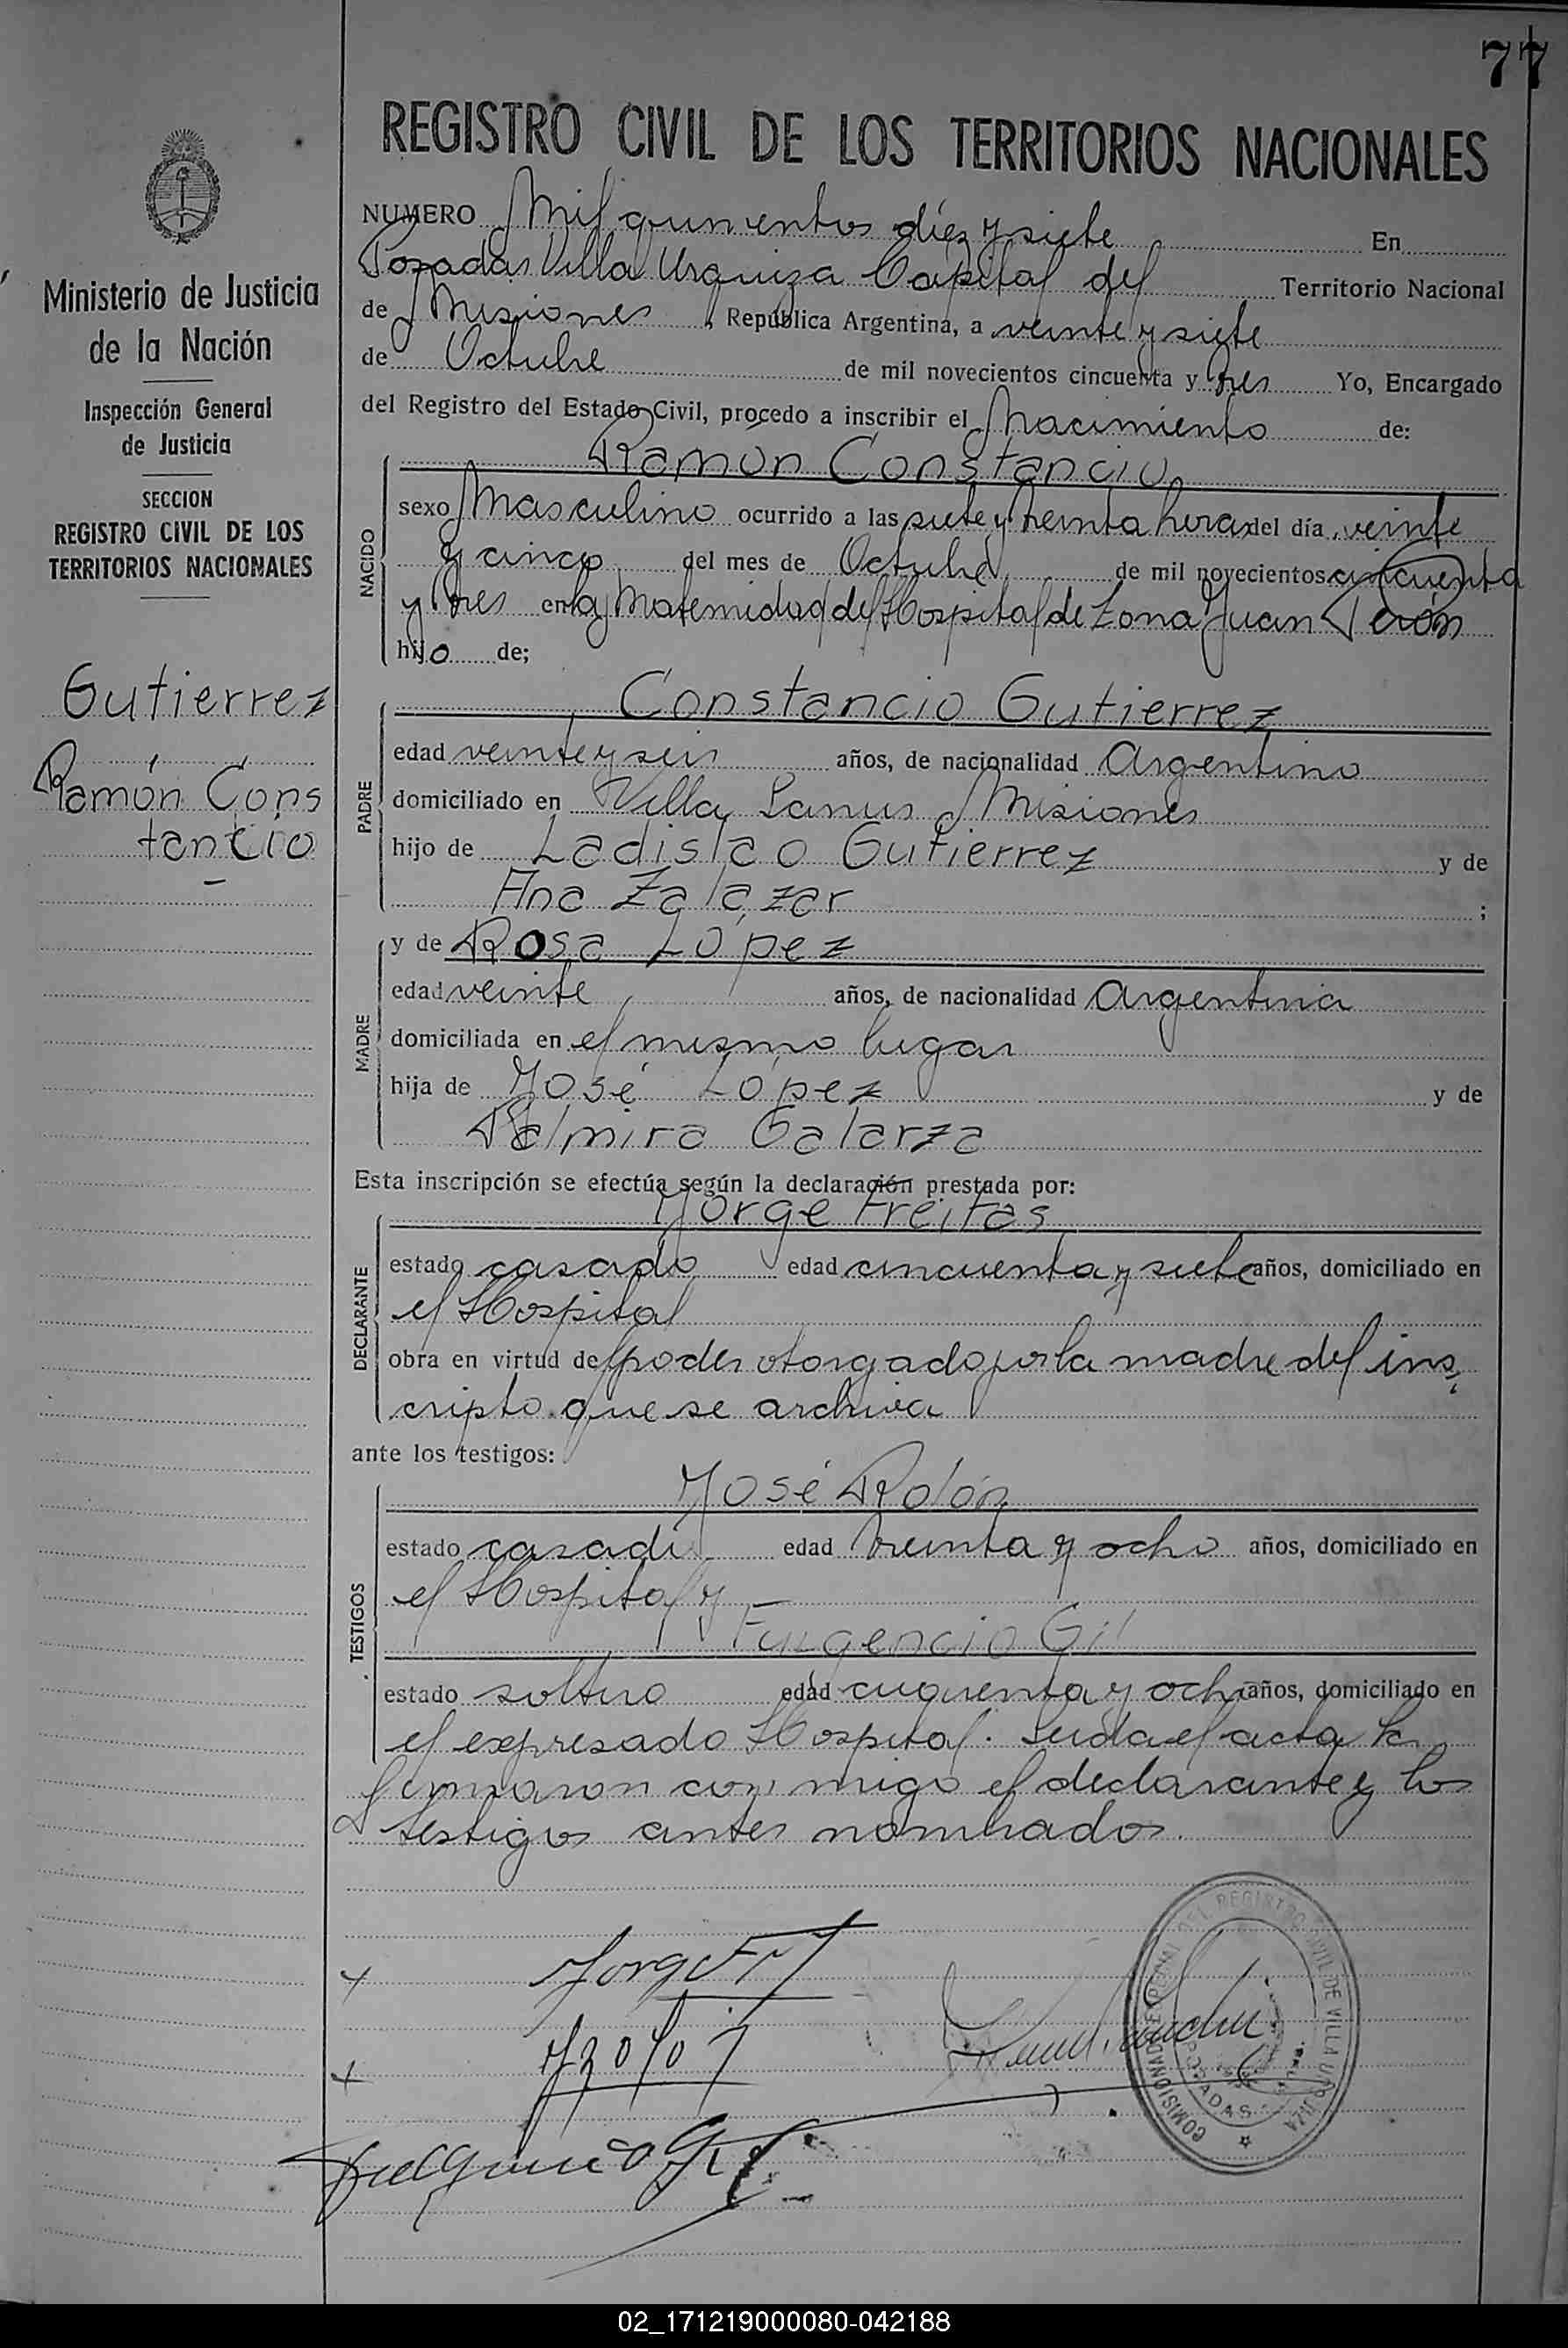 77
REGISTRO CIVIL DE LOS TERRITORIOS NACIONALES
NUMERO Mil quinientos diez y siete En
Posadas Villa Urquiza Capital del Territorio Nacional
de Misiones, República Argentina, a veinte y siete
de Octubre de mil novecientos cincuenta y tres Yo, Encargado
del Registro del Estado Civil, procedo a inscribir el Nacimiento de:
Ramón Constancio
NACIDO
sexo Masculino ocurrido a las siete y treinta horas del día veinte
y cinco del mes de Octubre de mil novecientos cincuenta
y tres en la Maternidad del Hospital de Zona Juan Perón
hijo de;
Constancio Gutierrez
PADRE
edad veinte y seis años, de nacionalidad Argentino
domiciliado en Villa Lanus Misiones
hijo de Ladislao Gutierrez y de
Ana Zalazar ;
MADRE
y de Rosa López
edad veinte años, de nacionalidad Argentina
domiciliada en el mismo lugar
hija de José López y de
Palmira Galarza
Esta inscripción se efectúa según la declaración prestada por:
Jorge Freitas
DECLARANTE
estado casado edad cincuenta y siete años, domiciliado en
el Hospital
obra en virtud del poder otorgado por la madre del ins-
cripto que se archiva
ante los testigos:
José Rolón
TESTIGOS
estado casado edad treinta y ocho años, domiciliado en
el Hospital y
Fulgencio Gil
estado soltero edad cuarenta y ocho años, domiciliado en
el expresado Hospital. Leida el acta la
firmaron conmigo el declarante y los
testigos antes nombrados.
Ministerio de Justicia
de la Nación
Inspección General
de Justicia
SECCION
REGISTRO CIVIL DE LOS
TERRITORIOS NACIONALES
Gutierrez
Ramón Cons
tancio
DEL REGISTRO CIVIL DE VILLA URQUIZA
POSADAS
02_171219000080-042188